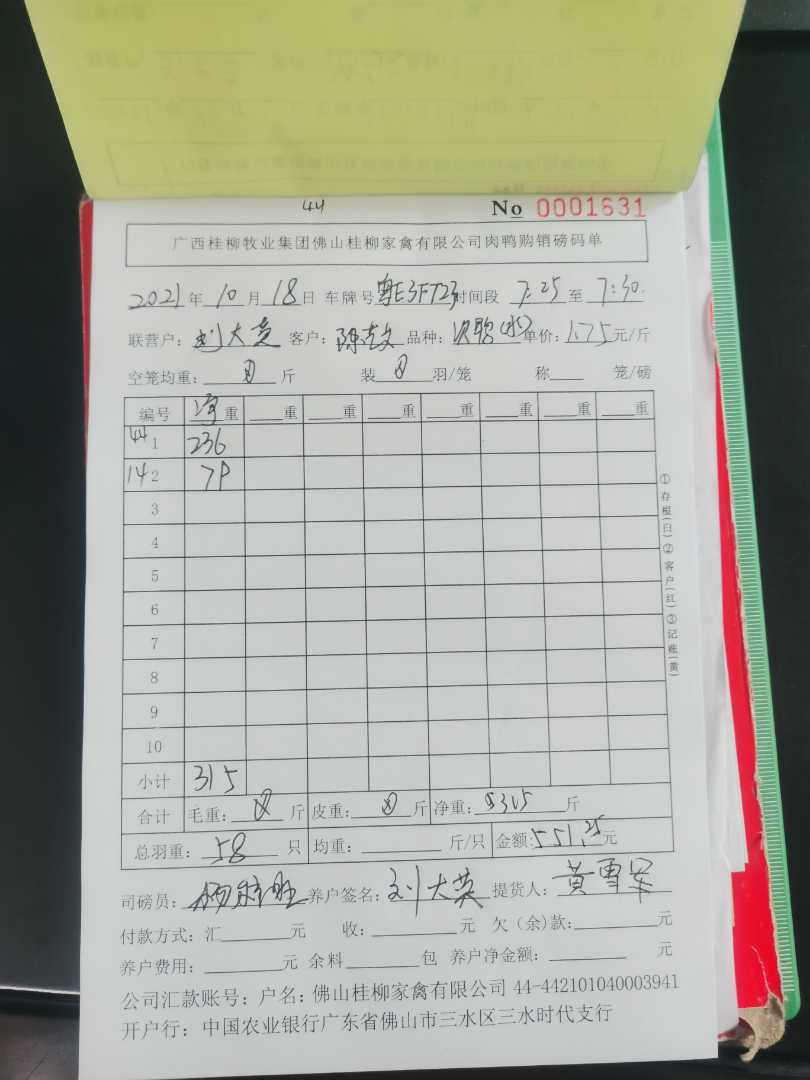 44
No 0001631
广西桂柳牧业集团佛山桂柳家禽有限公司肉鸭购销磅码单
2021年10月18日 车牌号粤E3FT23时间段 7:25至7:30
联营户:刘大英 客户:陈志文 品种:(水)单价:1.75元/斤
空笼均重:0斤 装0羽/笼 称 笼/磅
编号 净重 重 重 重 重 重 重 重
44 1 236
14 2 79
3
4
5
6
7
8
9
10
小计 315
合计 毛重:0斤 皮重:0斤 净重:315斤
总羽重:58只 均重: 斤/只 金额:551.25元
司磅员: 养户签名:刘大英 提货人:黄雪
付款方式:汇 元 收: 元 欠(余)款: 元
养户费用: 元 余料 包 养户净金额: 元
公司汇款账号:户名:佛山桂柳家禽有限公司 44-442101040003941
开户行:中国农业银行广东省佛山市三水区三水时代支行
①存根(白)②客户(红)③记账(黄)